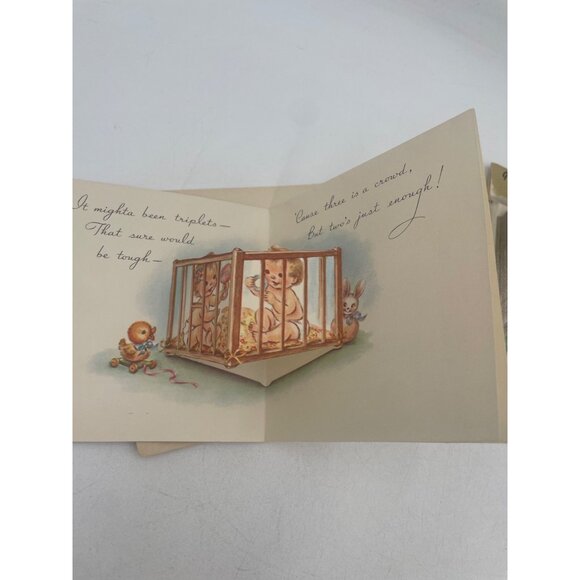 It mighta been triplets—
That sure would
be tough—
'Cause three is a crowd,
But two's just enough!